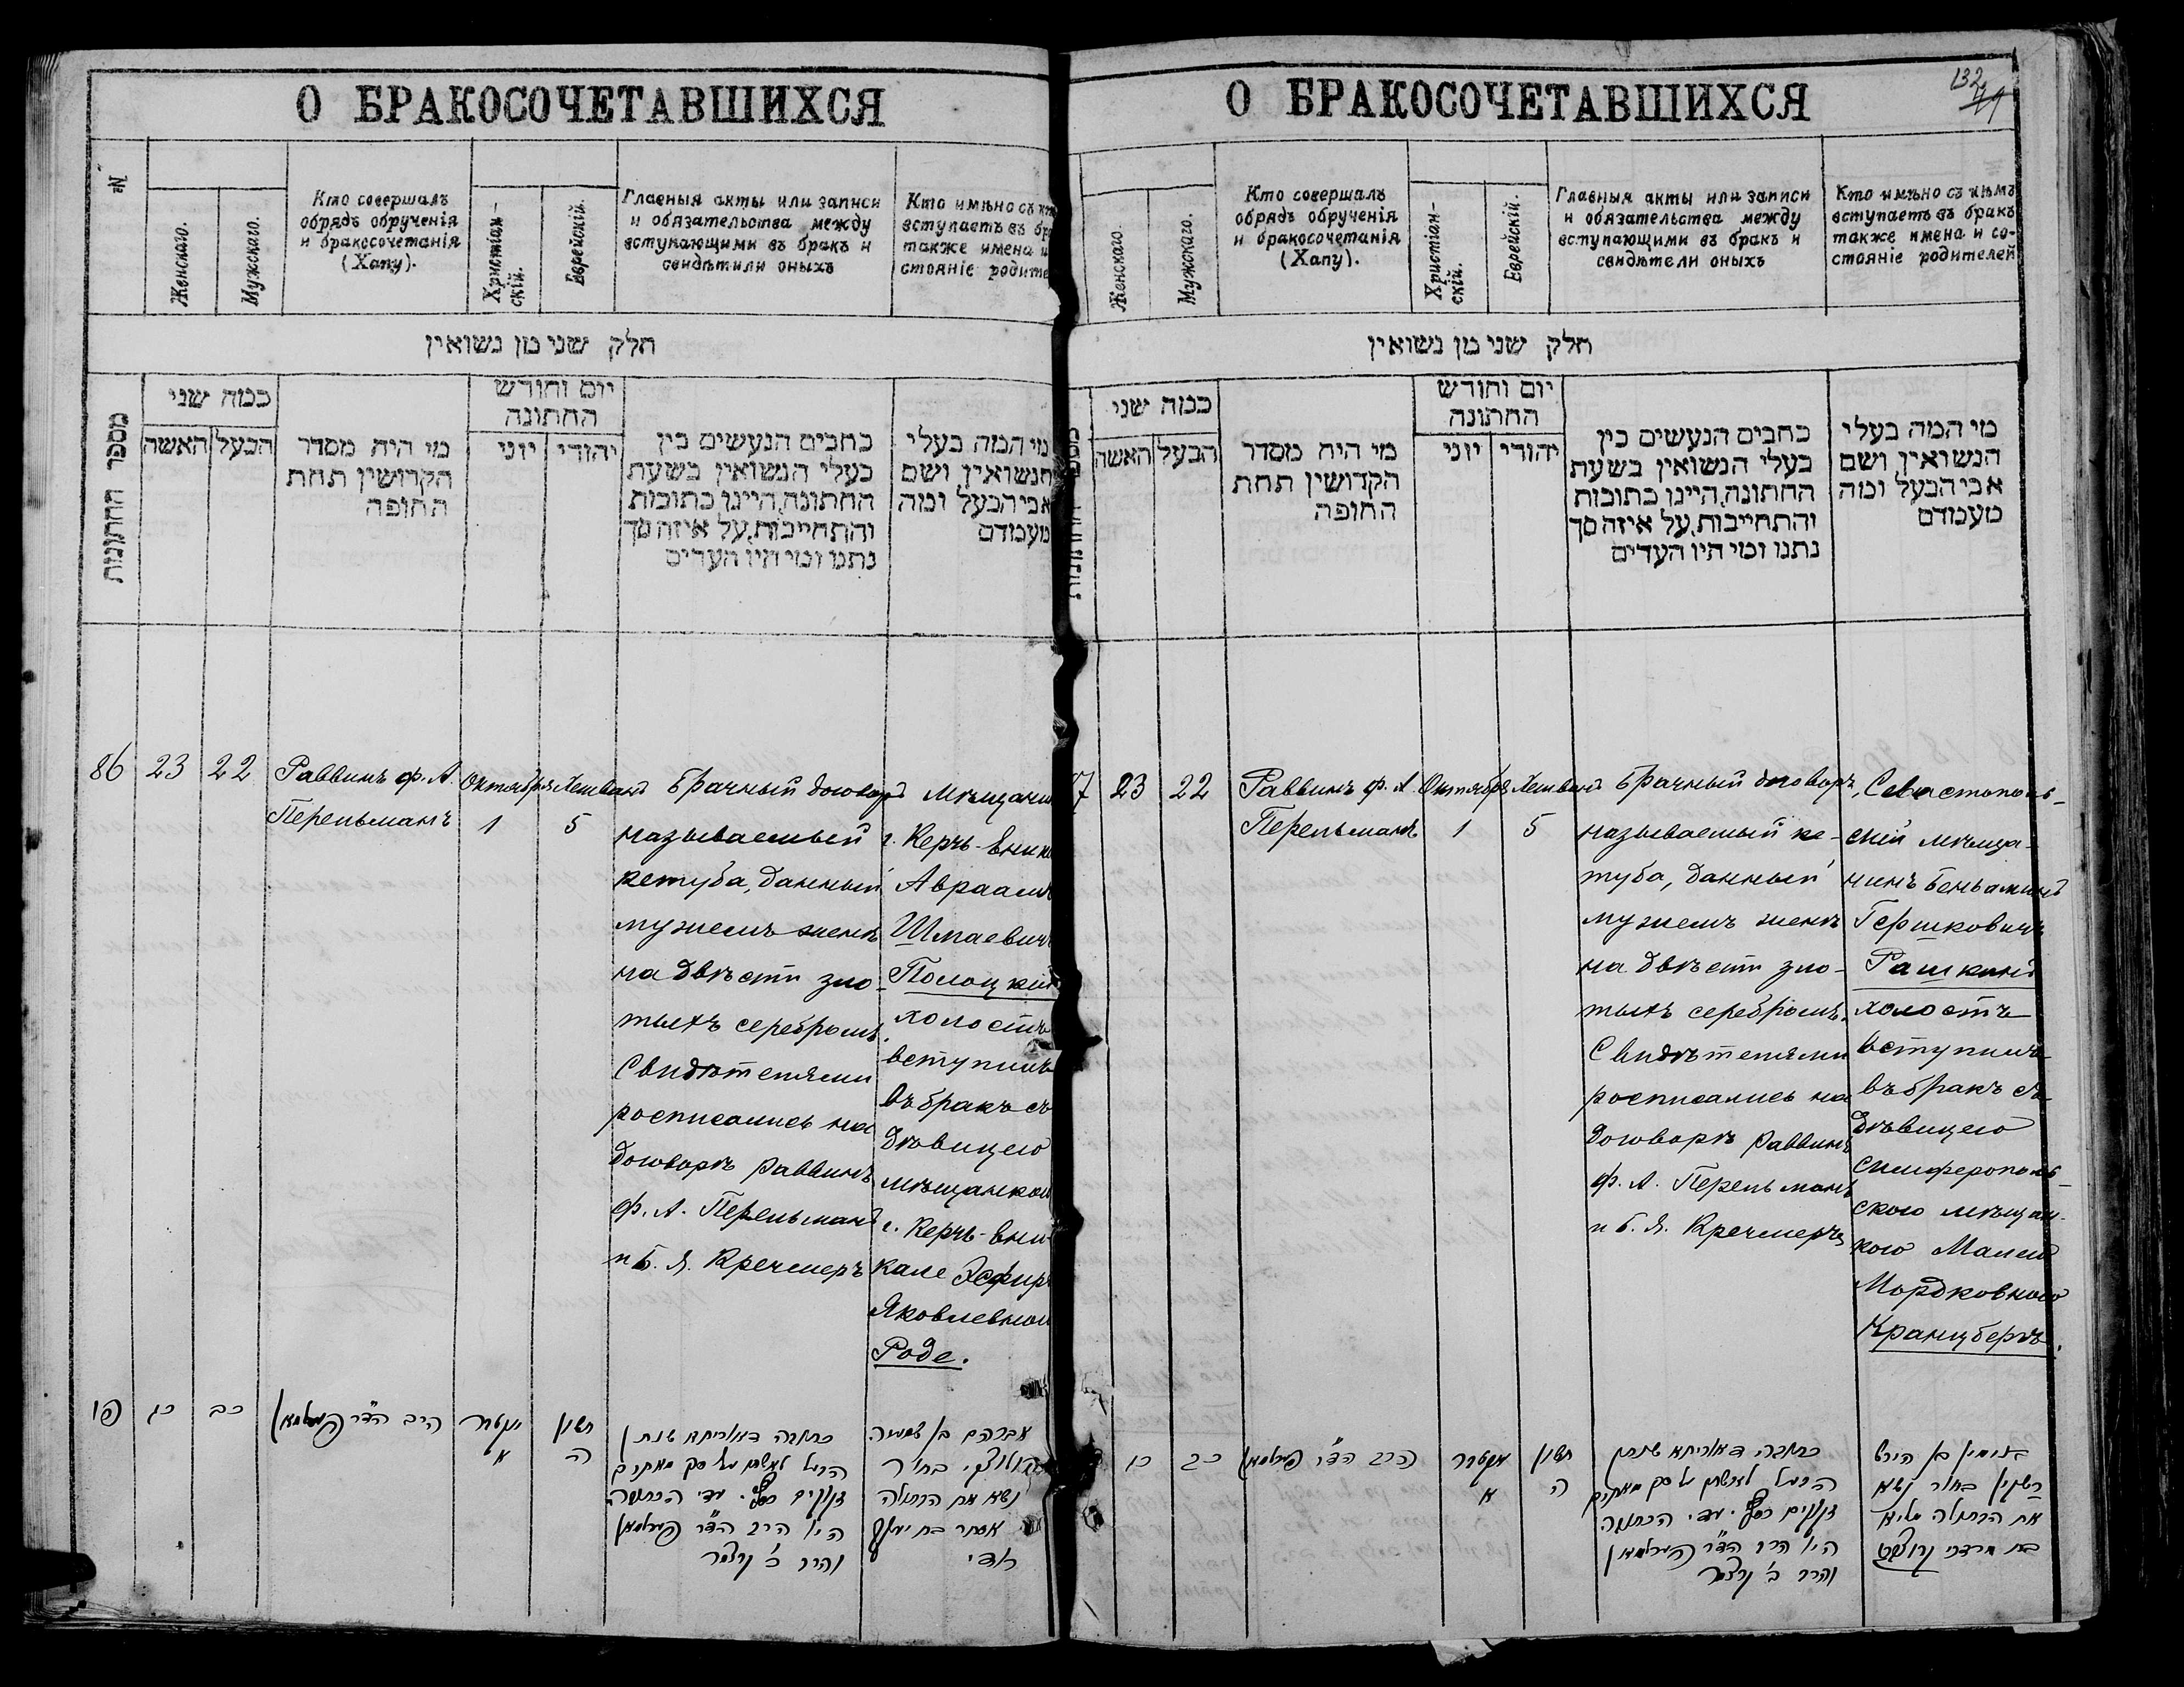 О БРАКОСОЧЕТАВШИХСЯ
№
Женскаго.
Мужскаго.
Кто совершалъ
обрядъ обрученія
и бракосочетанія
(Хапу).
Христіан-
скій.
Еврейскій.
Главныя акты или записи
и обязательства между
вступающими въ бракъ и
свидѣтили оныхъ
Кто имѣно съ
вступаетъ въ
также имена и
стояніе
חלק שני מן נשואין
מספר החתונות
כמה שני
האשה
הבעל
מי היה מסדר
הקדושין תחת
החופה
יום וחודש
החתונה
יוני
יהודי
כתבים הנעשים בין
בעלי הנשואין בשעת
החתונה, היינו כתובות
והתחייבות, על איזה סך
נתנו ומי היו העדים
מי המה בעלי
הנשואין ושם
אבי הבעל ומה
מעמדם
86
23
22
Раввинъ Ф. А.
Перельманъ
Октября
1
Хешванъ
5
Брачный договоръ
называемый
кетуба, данный
мужемъ женѣ
на двѣсти зло-
тыхъ серебромъ.
Свидѣтелями
росписались на
договорѣ раввинъ
Ф. А. Перельманъ
и Б. Я. Кречмеръ
Мѣщанинъ
г. Керчь-Ени
Авраамъ
Шмаевичъ
Полоцкій
холостъ
вступилъ
въ бракъ съ
дѣвицею
мѣщанкой
г. Керчь-Ени-
кале Эсфирь
Яковлевной
Роде.
פו
כג
כב
הרב הד״ר פערלמאן
אקטבר
א
חשון
ה
כתובה דאוריתא שנתן
הבעל לאשתו על סך מאתים
זקוקים כסף. עדי הכתובה
היו הרב הד״ר פערלמאן
והרר ב׳ קרצמר
אברהם בן שמעיה
פולוצקי בחור
נשא את הבתולה
אסתר בת יעקב
ראדי
О БРАКОСОЧЕТАВШИХСЯ
132
Женскаго.
Мужскаго.
Кто совершалъ
обрядъ обрученія
и бракосочетанія
(Хапу).
Христіан-
скій.
Еврейскій.
Главныя акты или записи
и обязательства между
вступающими въ бракъ и
свидѣтели оныхъ
Кто имѣно съ кѣмъ
вступаетъ въ бракъ
также имена и со-
стояніе родителей
חלק שני מן נשואין
כמה שני
האשה
הבעל
מי היה מסדר
הקדושין תחת
החופה
יום וחודש
החתונה
יוני
יהודי
כתבים הנעשים בין
בעלי הנשואין בשעת
החתונה, היינו כתובות
והתחייבות, על איזה סך
נתנו ומי היו העדים
מי המה בעלי
הנשואין ושם
אבי הבעל ומה
מעמדם
7
23
22
Раввинъ Ф. А.
Перельманъ
Октября
1
Хешванъ
5
Брачный договоръ,
называемый ке-
туба, данный
мужемъ женѣ
на двѣсти зло-
тыхъ серебромъ.
Свидѣтелями
росписались на
договорѣ раввинъ
Ф. А. Перельманъ
и Б. Я. Кречмеръ
Севастополь-
скій мѣща-
нинъ Беньаминъ
Гершковичъ
Рашкинъ
холостъ
вступилъ
въ бракъ съ
дѣвицею
симферополь-
скою мѣщан-
кою Малей
Мордковною
Кранцбергъ.
כג
כב
הרב הד״ר פערלמאן
אקטבר
א
חשון
ה
כתובה דאוריתא שנתן
הבעל לאשתו על סך מאתים
זקוקים כסף. עדי הכתובה
היו הרב הד״ר פערלמאן
והרר ב׳ קרצמר
בנימין בן הירש
רשקין בחור נשא
את הבתולה מליא
בת מרדכי